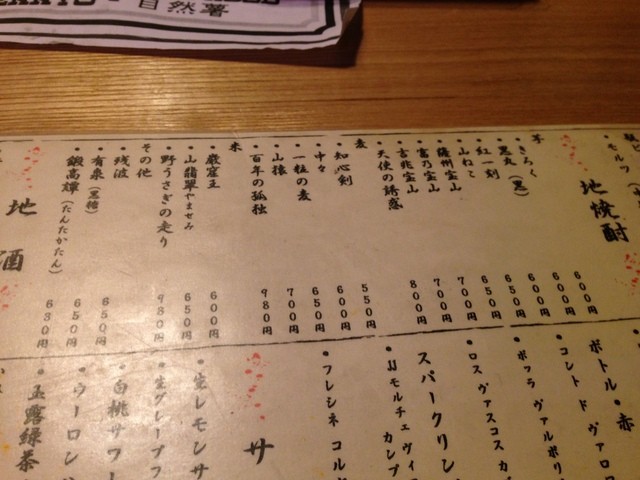 自然薯
・モルツ
地焼酎
芋
・きろく 600円
・黒丸(黒) 600円
・紅一刻 600円
・山ねこ 650円
・薩州宝山 650円
・富乃宝山 700円
・吉兆宝山 700円
・天使の誘惑 800円
麦
・知心剣 550円
・中々 600円
・一粒の麦 650円
・山猿 700円
・百年の孤独 980円
米
・巌窟王 600円
・山翡翠やませみ 650円
・野うさぎの走り 980円
その他
・残波 650円
・有泉(黒糖) 650円
・鍛高譚(たんたかたん) 630円
地酒
ボトル・赤
・コレント ドゥ ヴァロ
・ポッラ ヴァルポリ
・ロス ヴァスコス カ
スパークリン
・JJ モルチェ ヴィ
カンプ
・フレシネ コル
サ
・生レモンサ
・生グレープフ
・白桃サワー
・ウーロン
・玉露緑茶